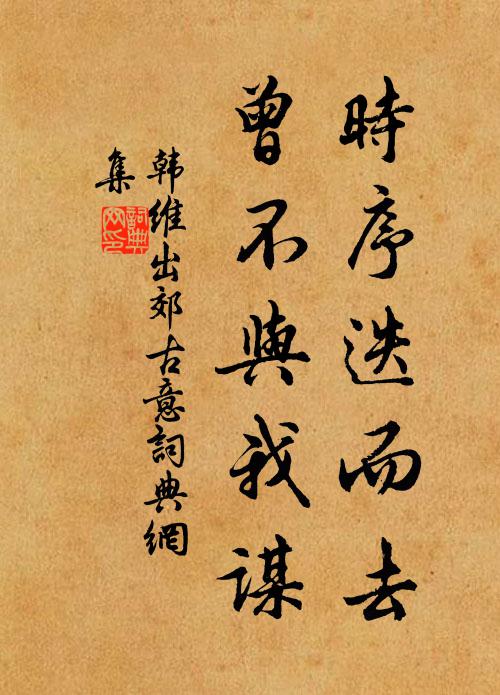 時序迭而去
曾不與我謀
韩維出郊古意詞典網
集
詞典
网印